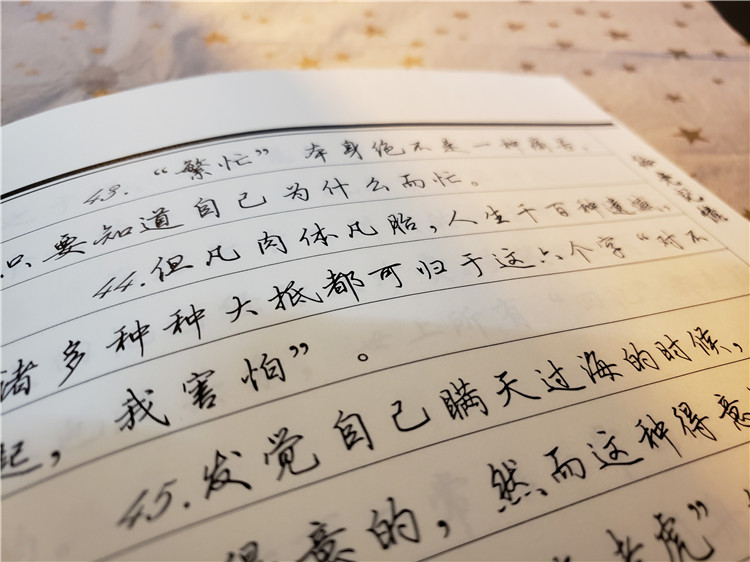 43.“繁忙”本身绝不是一种痛苦,
只要知道自己为什么而忙。
44.但凡肉体凡胎,人生千百种遗憾,
诸多种种大抵都可归于这六个字“对不
起,我害怕”。
45.发觉自己瞒天过海的时候,
得意的,然而这种得意
老虎”